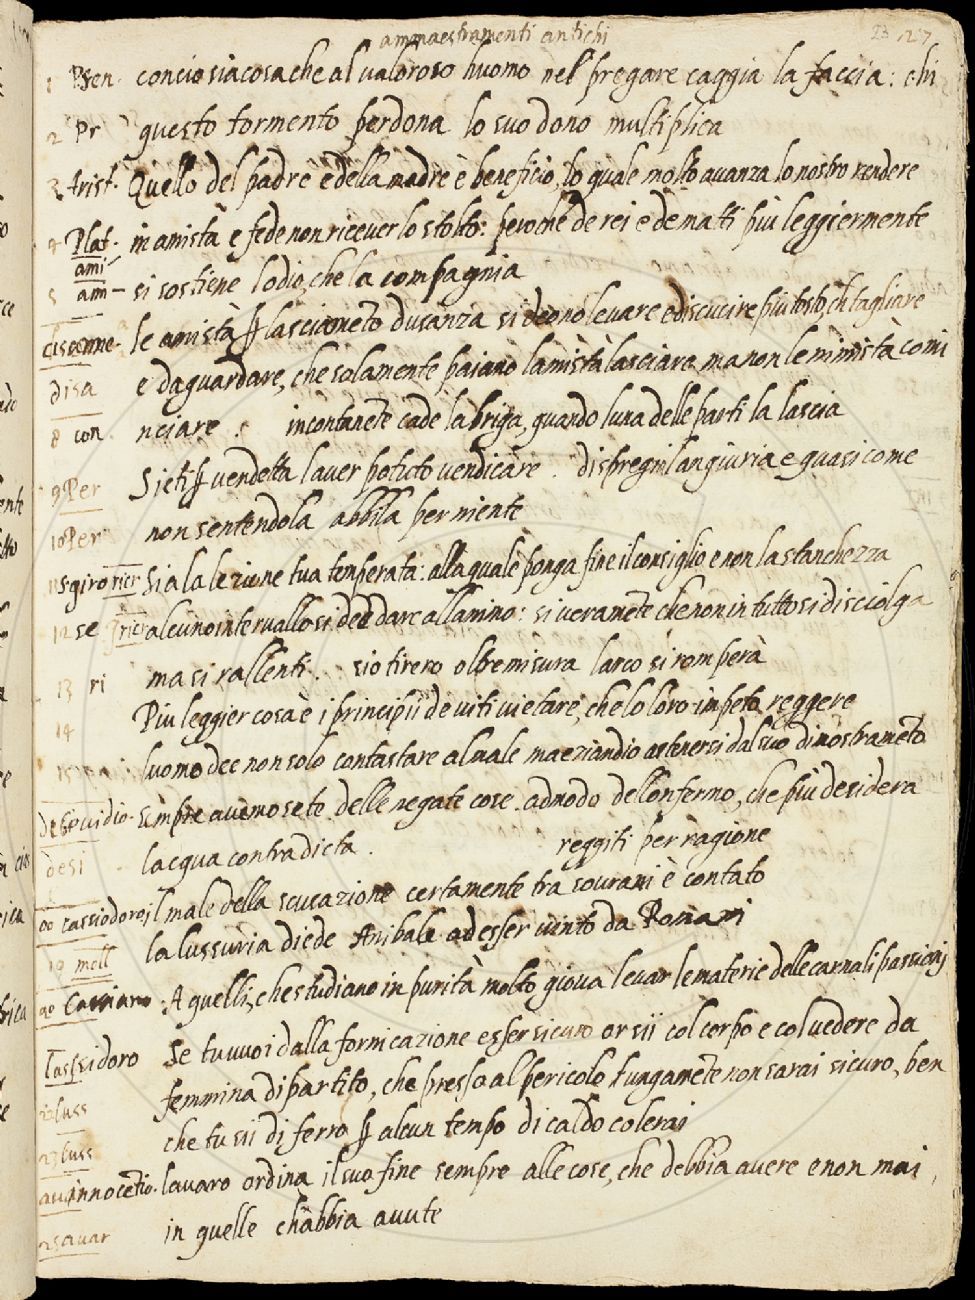 ammaestramenti antichi 23 127
1 Psen. conciosiacosache al valoroso huomo nel pregare caggia la faccia: chi
2 Pr questo tormento perdona lo suo dono multiplica
3 Arist. Quello del padre e della madre è beneficio, lo quale molto avanza lo nostro rendere
4 Plat. in amista e fede non ricever lo stolto: peroche de rei e de matti piu leggiermente
ami
5 am– si sostiene lodio, che la compagnia
le amistà p lasciameto dusanza si deono levare e discucire piu tosto, ch tagliare
disa e da guardare, che solamente paiano lamistà lasciare ma non le nimistà comi
8 con nciare. incontanete cade la briga, quando luna delle parti la lascia
9 Per Sieti p vendetta laver potuto vendicare. dispregia langiuria e quasi come
10 Per non sentendola abbila per niente
sgiro ricr Sia la lezione tua temperata: alla quale ponga fine il consiglio e non la stanchezza
12 se ricr alcuno intervallo si dee dare allanimo: si veramete che non in tutto si disciolga
13 ri ma si rallenti. sio tirero oltremisura larco si romperà
14 Piu leggier cosa è i principii de viti vietare, che lo loro impeto reggere
luomo dee non solo contastare al male ma eziandio astenersi dal suo dimostrameto
ovidio. Sempre avemo sete delle negate cose. a modo dellonfermo, che più desidera
desi lacqua contradicta. reggiti per ragione
cassiodoro il male della scusazione certamente tra sourani è contato
19 moll la lussuria diede Anibale ad esser vinto da Romani
Cassiano. A quelli, che studiano in purità molto giova levar le materie delle carnali passioni
sidoro Se tu vuoi dalla fornicazione esser sicuro or sii col corpo e col vedere da
22 luss femmina dipartito, che presso al pericolo lungamete non sarai sicuro, ben
23 luss che tu sii di ferro p alcun tempo di caldo colerai
innocetio. lavaro ordina il suo fine sempre alle cose, che debbia avere e non mai,
25 avar in quelle chabbia avute